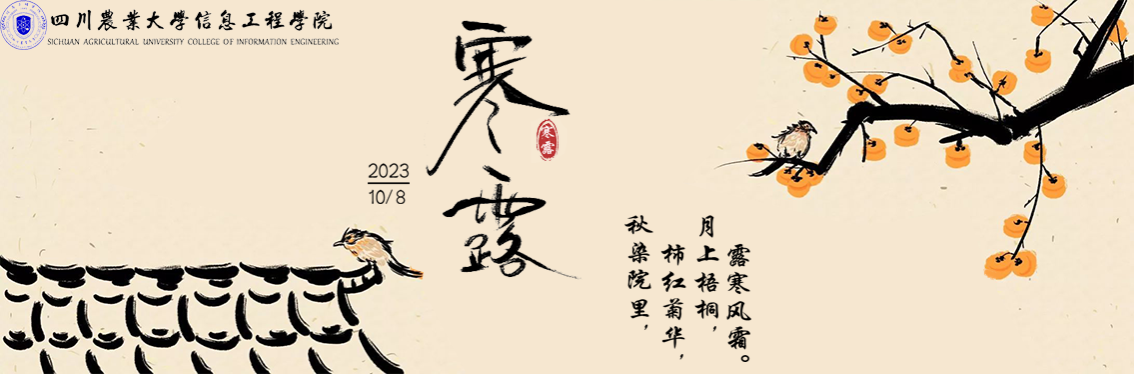 四川農業大學信息工程學院
SICHUAN AGRICULTURAL UNIVERSITY COLLEGE OF INFORMATION ENGINEERING
寒露
寒露
2023
10/8
秋染院里，
柿红菊华，
月上梧桐，
露寒风霜。